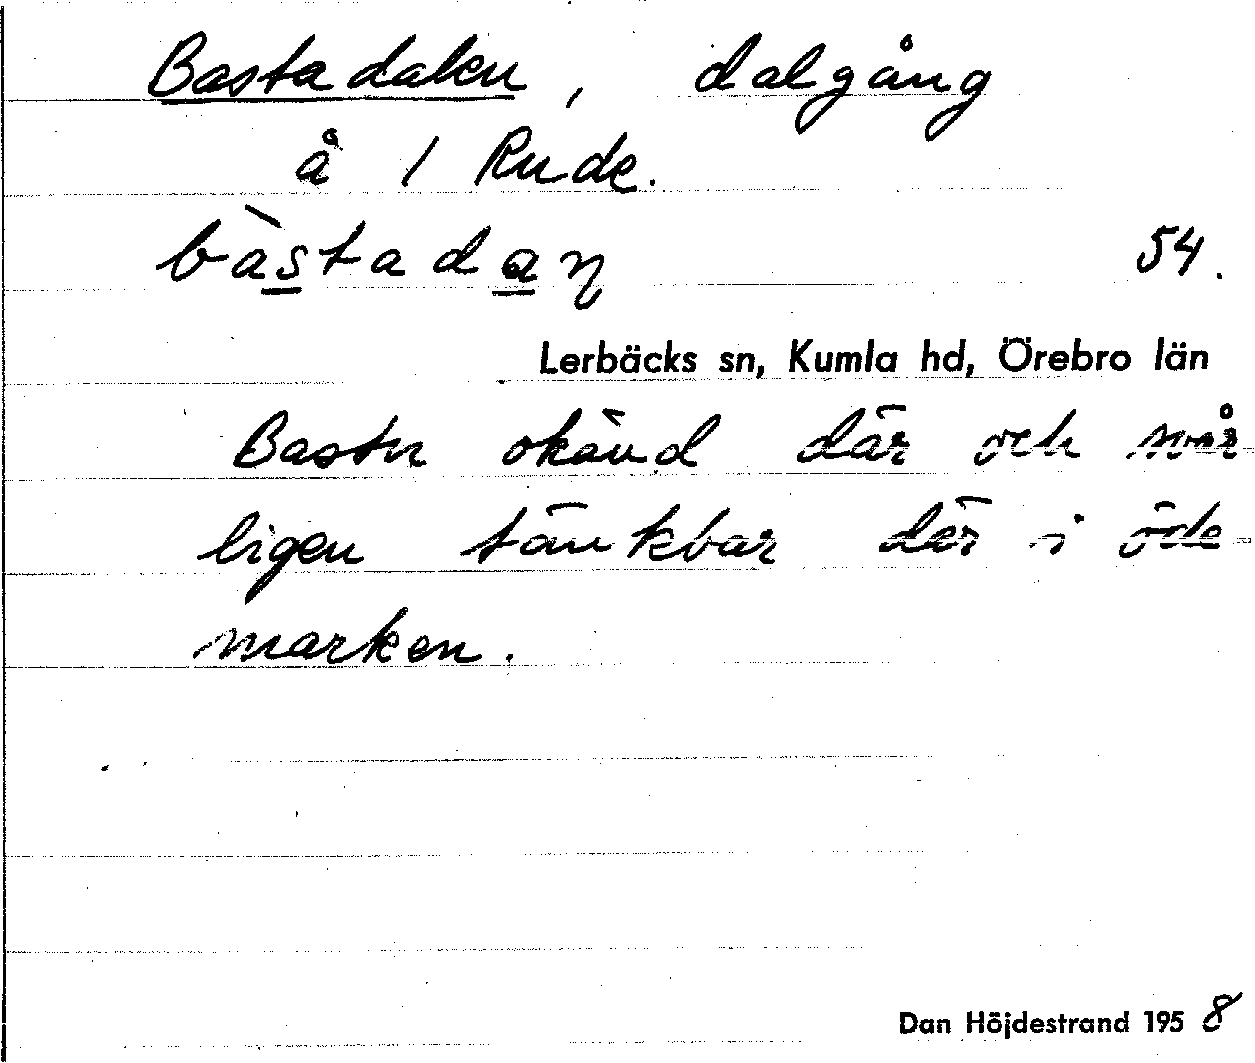 Bastadalen, dalgång
å 1 Rude.
bàstadaŋ 54.
Lerbäcks sn, Kumla hd, Örebro län
Bastu okänd där och svår-
ligen tänkbar där i öde-
marken.
Dan Höjdestrand 1958